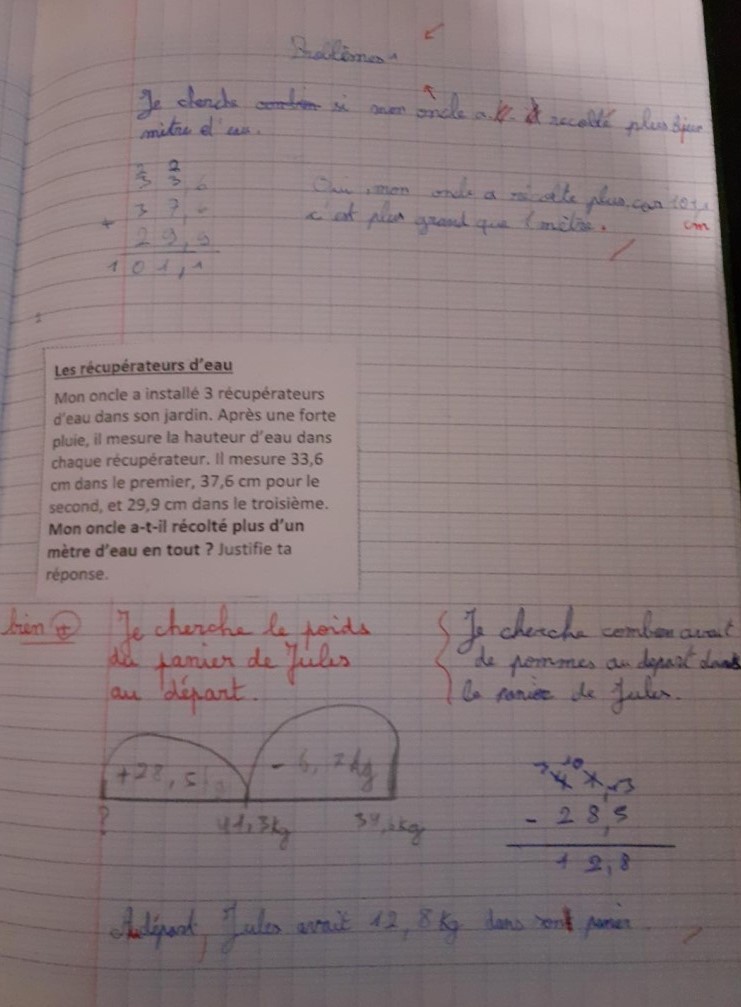 Problèmes
Je cherche combien si mon oncle a récolté plus d'un
mètre d'eau.
2 2
3 3,6
3 7,6
+ 2 9,9
1 0 1,1
Oui, mon oncle a récolte plus car 101,1
cm
c'est plus grand que 1 mètre.
Les récupérateurs d'eau
Mon oncle a installé 3 récupérateurs
d'eau dans son jardin. Après une forte
pluie, il mesure la hauteur d'eau dans
chaque récupérateur. Il mesure 33,6
cm dans le premier, 37,6 cm pour le
second, et 29,9 cm dans le troisième.
Mon oncle a-t-il récolté plus d'un
mètre d'eau en tout ? Justifie ta
réponse.
bien +
Je cherche le poids
du panier de Jules
au départ.
Je cherche combien avait
de pommes au départ dans
le panier de Jules.
+28,5 - 6,7kg
? 41,3kg 34,6kg
3 4 10 1,13
- 2 8,5
1 2,8
Au départ, Jules avait 12,8 Kg dans son panier.